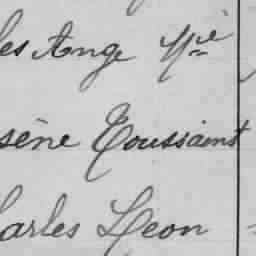 les Ange
sène Toussaint
harles Leon